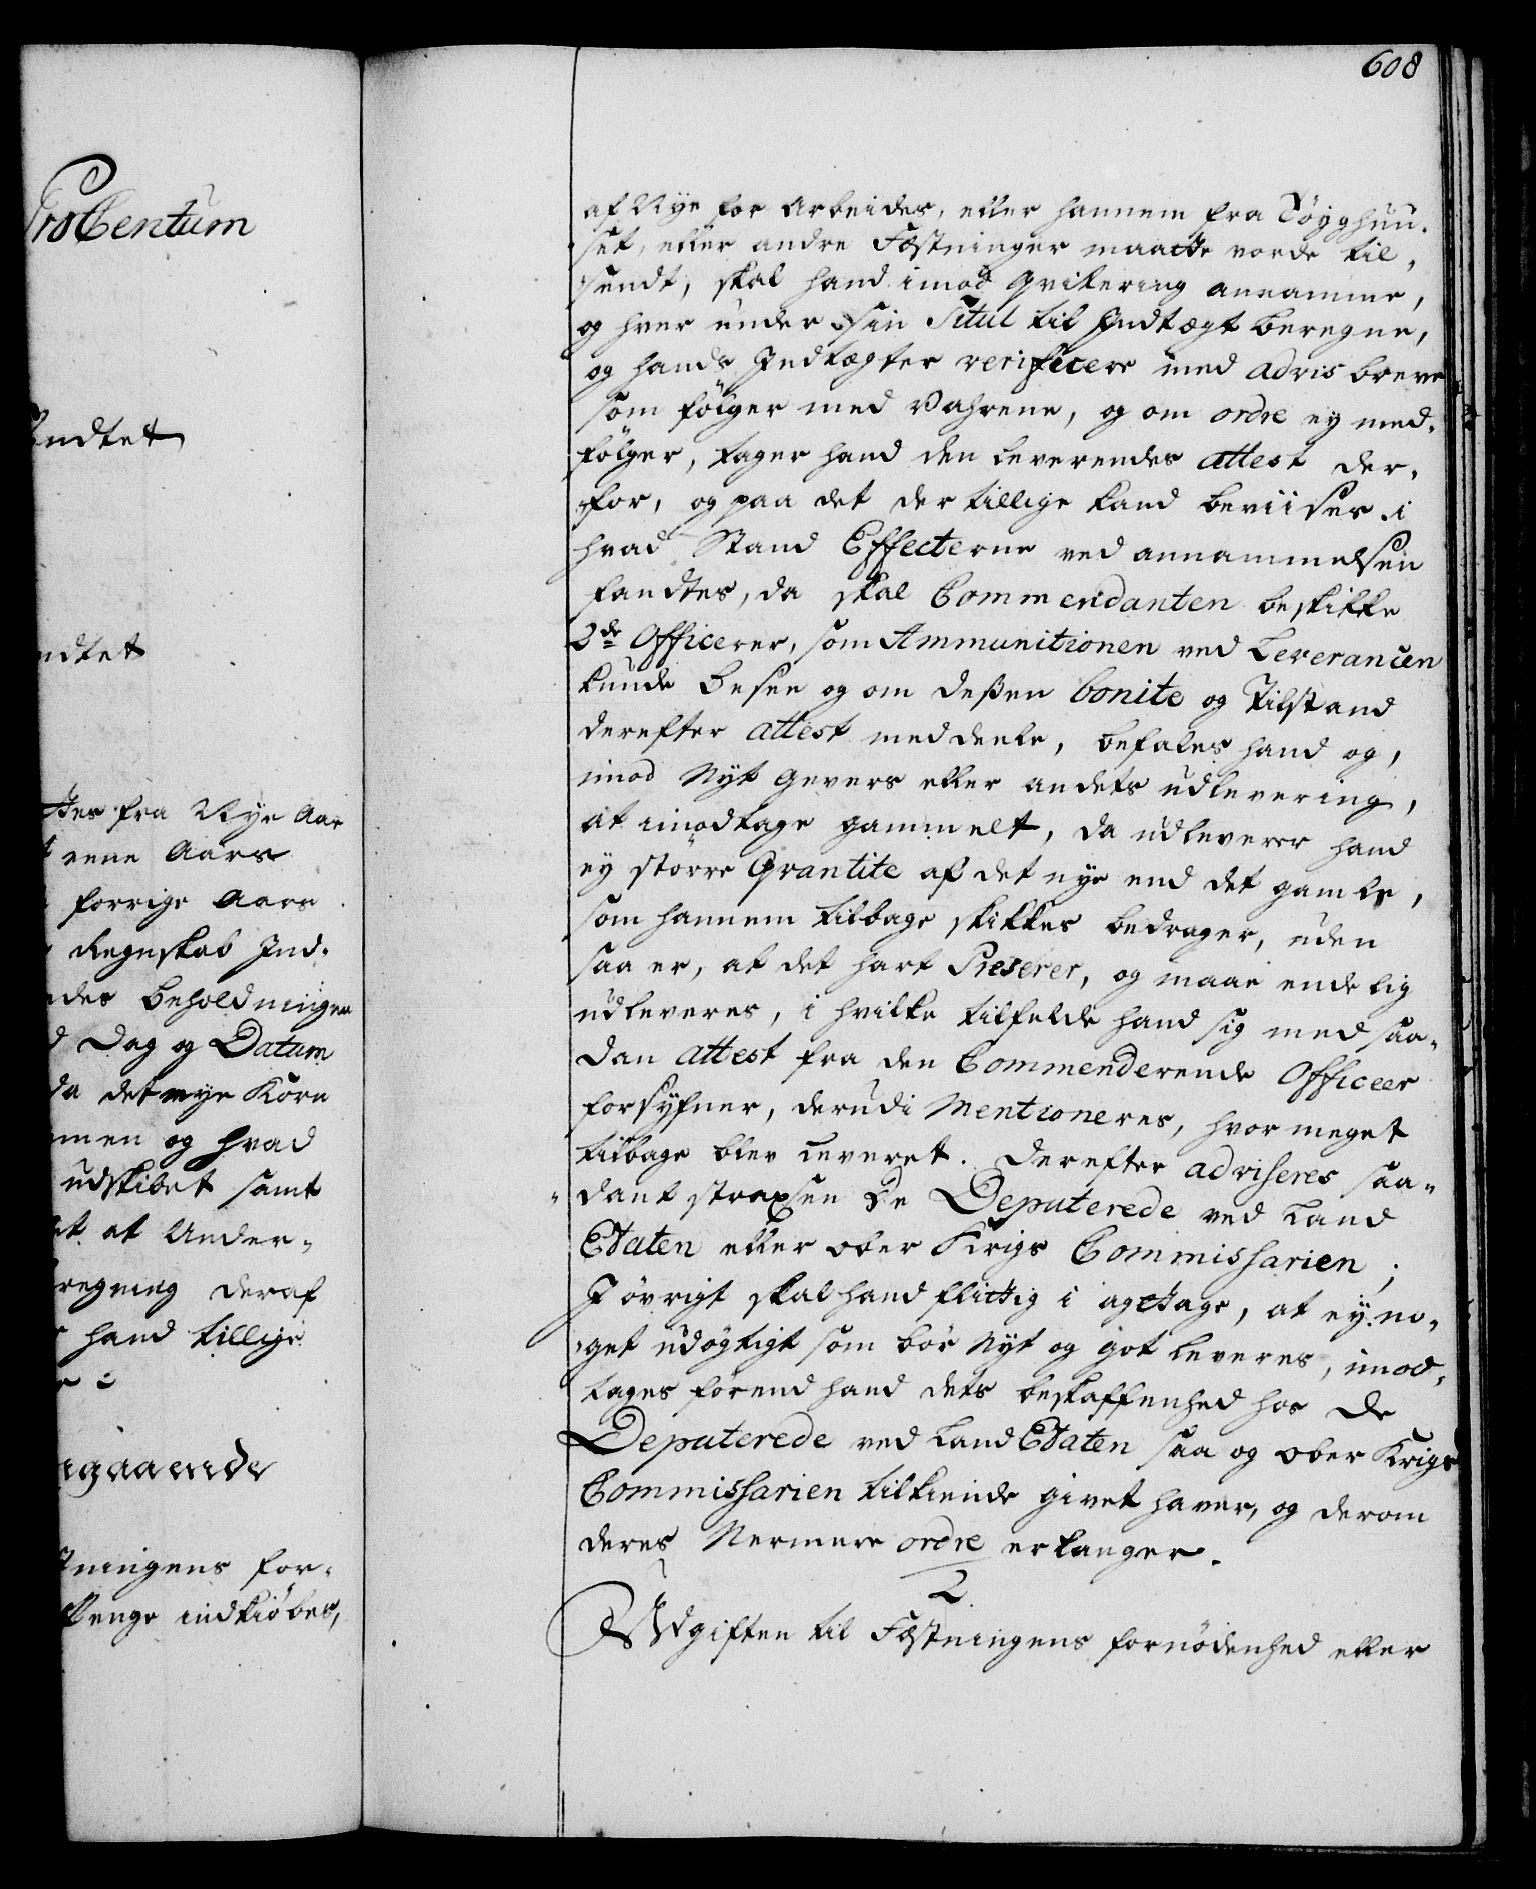 608
Pro Centum
Endtet
ndtet
ttes fra Nye Aar
t eene Aars
forrige Aars
Regnskab Ind-
ndes beholdninger
d Dag og Datum
da det nye Korn
men og hvad
udskibet samt
et at Under-
regning deraf
hand tillige
ngaaende
tningens for-
Penge indkiöbes,
af Nye for arbeides, eller hannem fra Töyghuu-
set, eller andre Fæstninger maatte vorde til-
sendt, skal hand imod qvitering annamme,
og hver under sin Titul til Indtægt beregne,
og hands Indtægter verificere med advis breve
som fölger med Vahrene, og om ordre ey med-
fölger, tager hand den leverendes attest der-
for, og paa det der tillige kand beviises i
hvad Stand Effecterne ved annammelsen
fandtes, da skal Commendanten beskikke
2de Officerer, som Ammunitionen ved Leverancen
kunde besee og om deßen bonite og Tilstand
derefter attest meddeele, befales hand og,
imod Nyt gevers eller andets udlevering,
at imodtage gammelt, da udleverer hand
ey större Qvantite af det nye end det gamle,
som hannem tilbage skikkes bedrager, uden
saa er, at det hart Preserer, og maae endelig
udleveres, i hvilke tilfelde hand sig med saa-
dan attest fra den Commenderende Officeer
forsyfner, derudi Mentioneres, hvor meget
tilbage blev leveret. Derefter adviseres saa-
dant straxsen De Deputerede ved Land
Etaten eller ober Krigs Commissarien;
I övrigt skal hand flittig i agttage, at ey no-
get udögtigt som bör Nyt og got leveres, imod-
tages förend hand dets beskaffenhed hos De
Deputerede ved Land Etaten saa og ober Krigs
Commissarien tilkiende givet haver, og derom
deres Nermere ordre erlanger.
2
Udgiften til Fæstningens fornödenhed eller